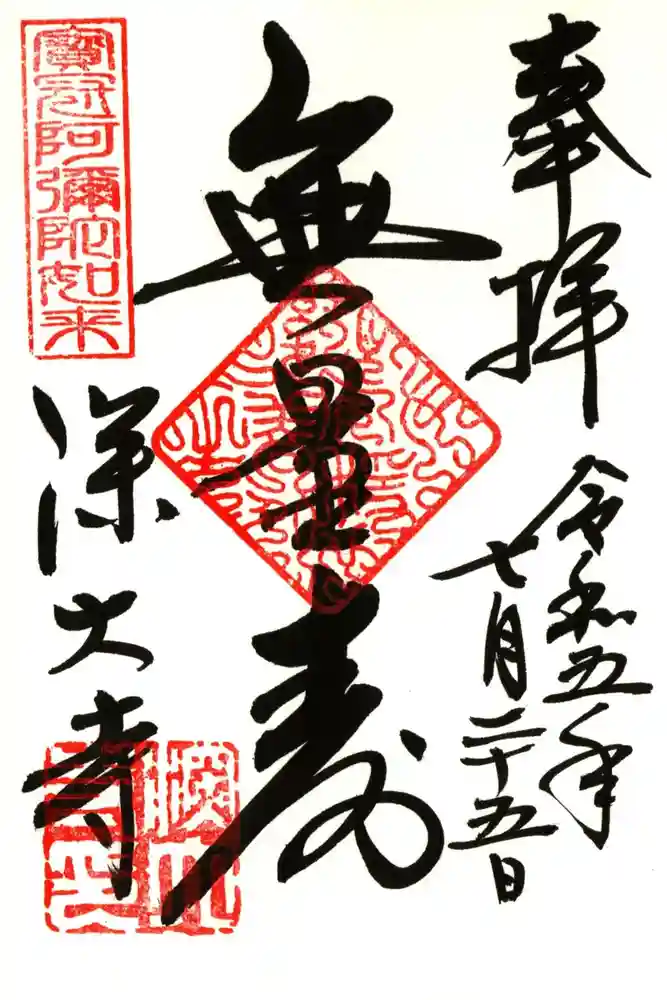 奉拝
令和五年
七月二十五日
無量寿
寶冠阿彌陀如来
深大寺